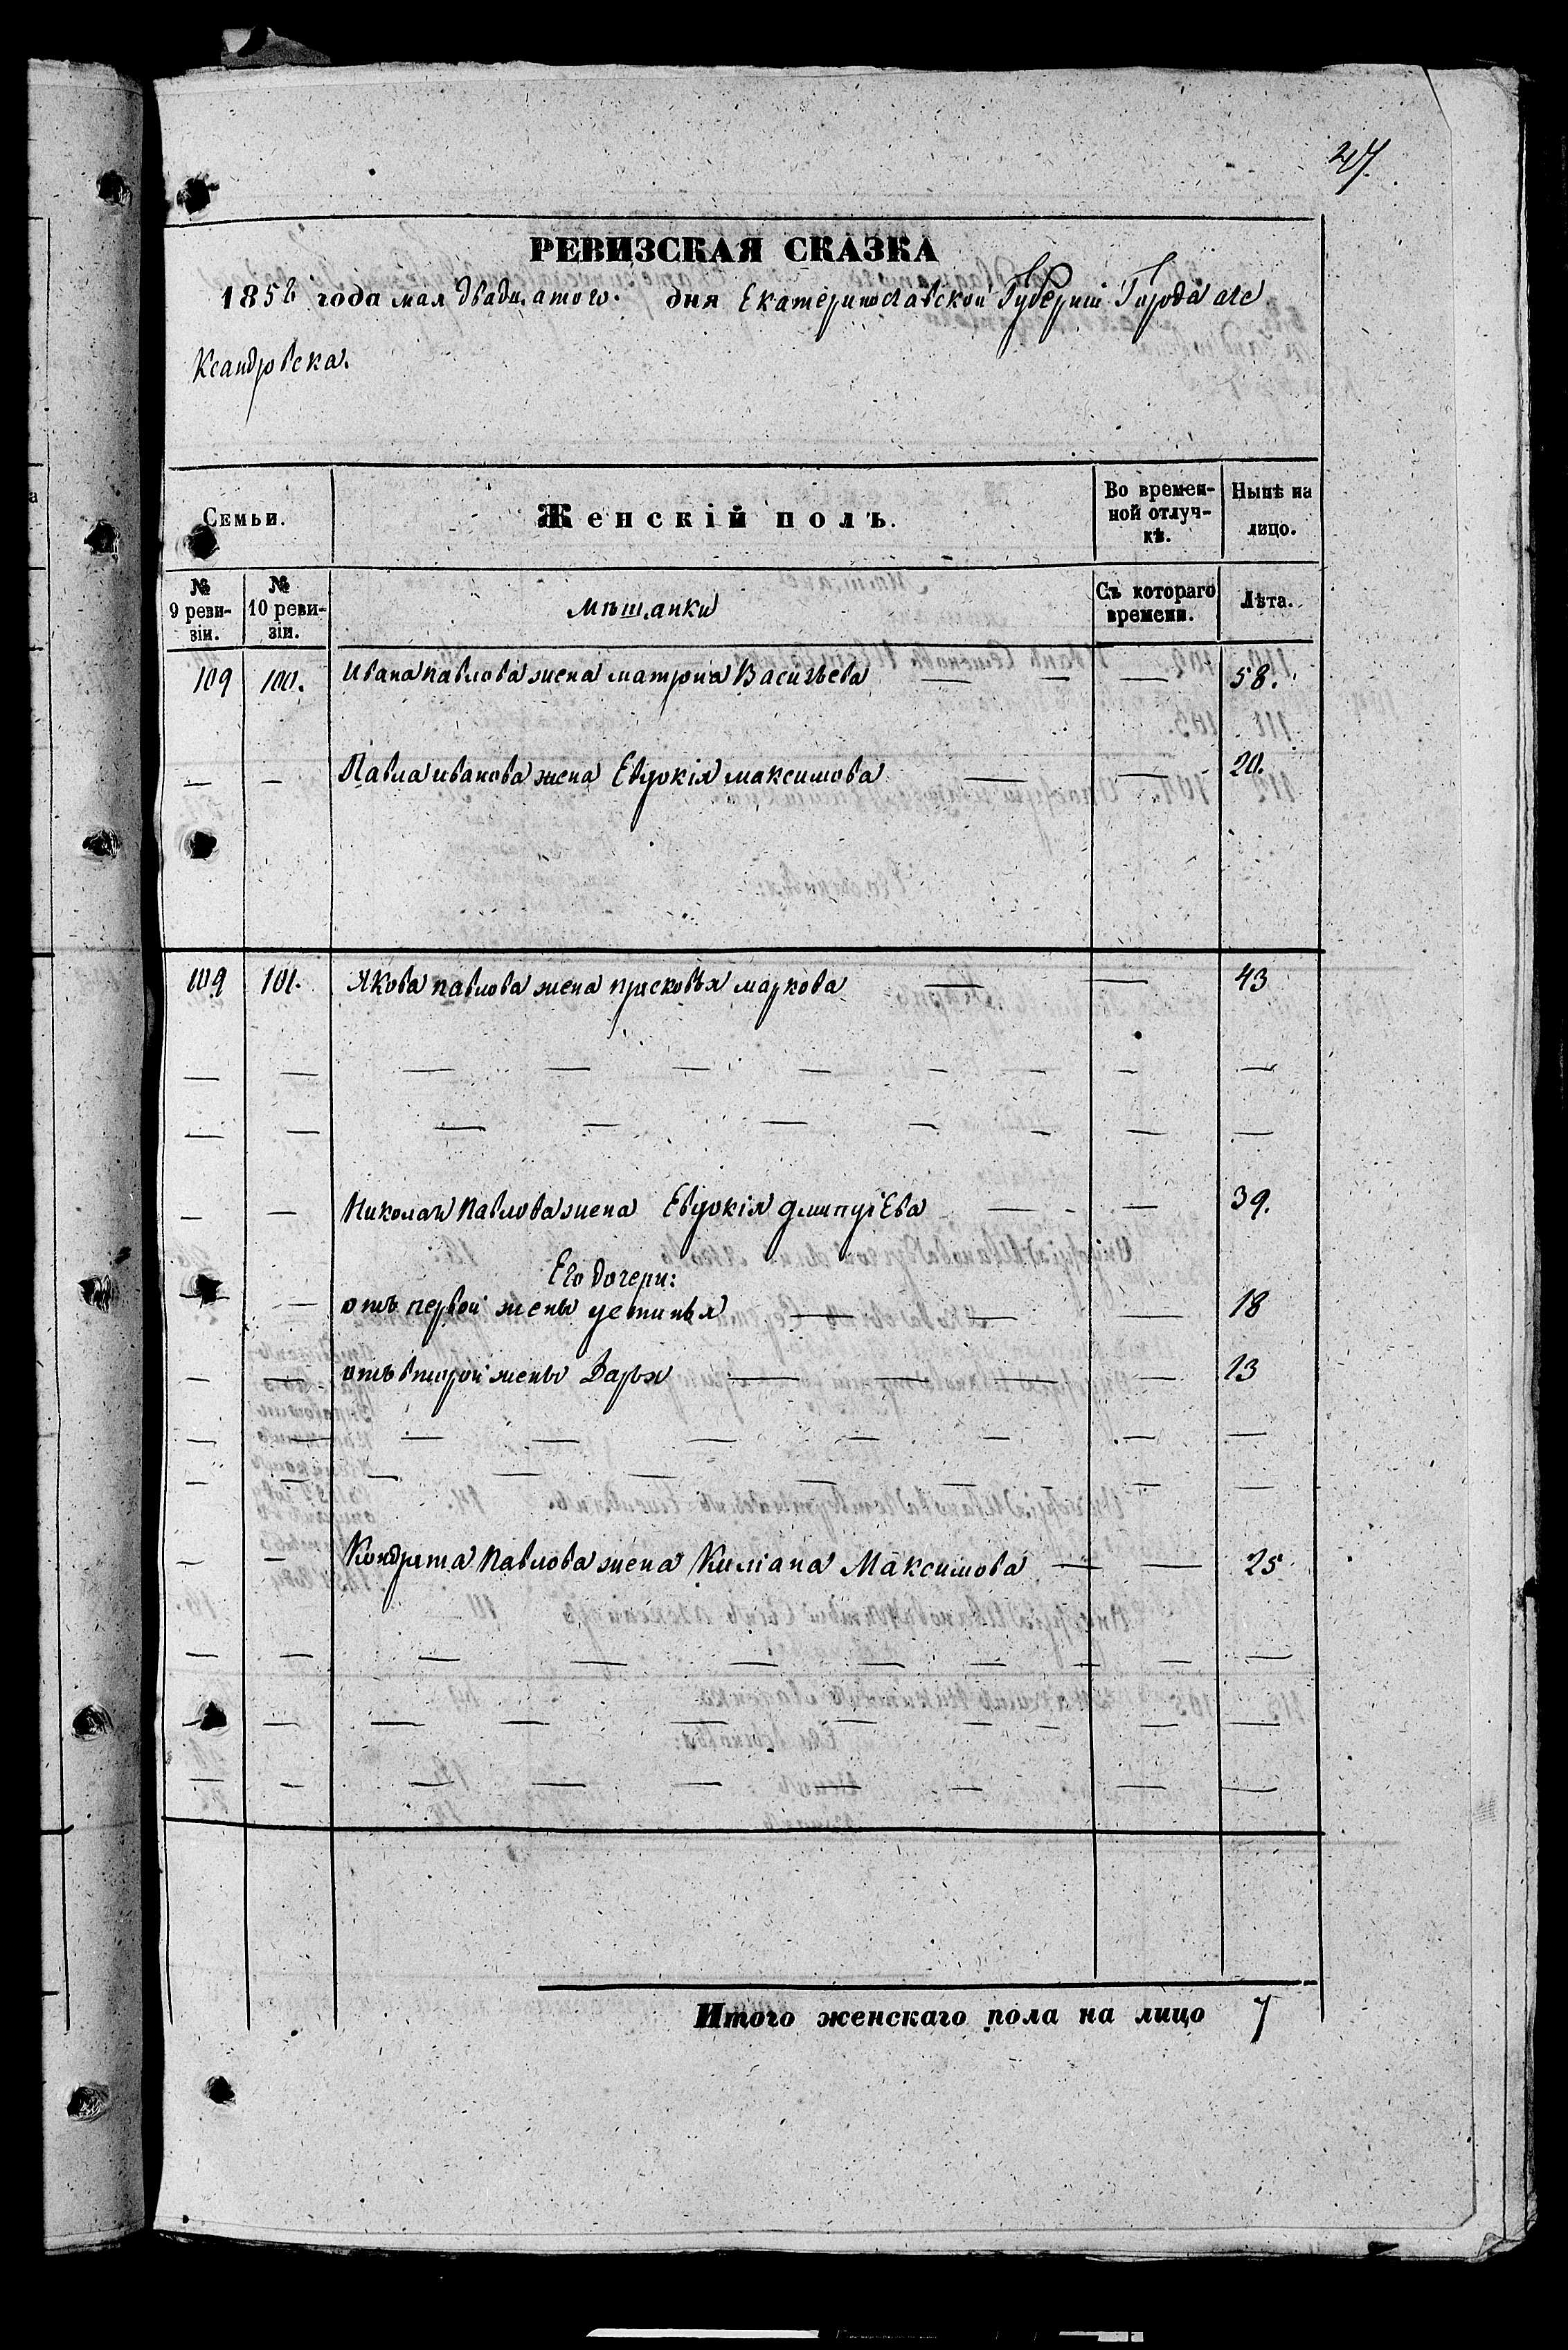 47.
РЕВИЗСКАЯ СКАЗКА
1858 года мая двадцатого. дня Екатеринославской Губерніи Города Але
ксандровска.
Семьи. Женскій полъ. Во времен- Нынѣ на
ной отлуч- лицо.
кѣ.
№ № Съ котораго Лѣта.
9 реви- 10 реви- мѣщанки времени.
зіи. зіи.
109 100. Ивана павлова жена матрона Васильева — — — 58.
— — Павла иванова жена Евдокія максимова — — 20.
109 101. Якова павлова жена прасковья маркова — — 43
— — Николая Павлова жена Евдокія дмитріева — — 39.
Его дочери:
— — отъ первой жены устинья — — — 18
— — отъ второй жены Дарья — — — — 13
— — Кондрата Павлова жена Киліана Максимова — — 25
Итого женскаго пола на лицо 7